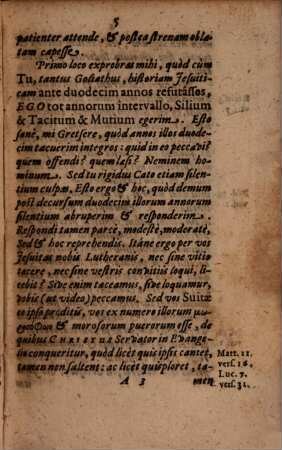 5
patienter attende, & postea strenam obla-
tam capesse.
Primo loco exprobras mihi, quòd cùm
Tu, tantus Goliathus, historiam Jesuiti-
cam ante duodecim annos refutâsses,
EGO tot annorum intervallo, Silium
& Tacitum & Mutium egerim. Esto
sanè, mi Gretsere, quòd annos illos duode-
cim tacuerim integros: quid in eo peccavi?
quem offendi? quem læsi? Neminem ho-
minum. Sed tu rigidus Cato etiam silen-
tium culpas, Esto ergò & hoc, quòd demum
post decursum duodecim illorum annorum
silentium abruperim & responderim.
Respondi tamen parcè, modestè, moderatè,
Sed & hoc reprehendis. Itáne ergo per vos
Jesuitas nobis Lutheranis, nec sine vitio
tacere, nec sine vestris convitiis loqui, li-
cebit? Sive enim taceamus, sive loquamur,
vobis (ut video) peccamus. Sed vos Suitæ
eo ipso proditis, vos ex numero illorum μω-
ροσοφων & morosorum puerorum esse, de
quibus CHRISTUS Servator in Evange-
lio conqueritur, quòd licèt quis ipsis cantet,
tamen non saltent: ac licèt quis ploret, ta-
A 3 men
Matt. 11.
vers. 16.
Luc. 7.
vers. 32.